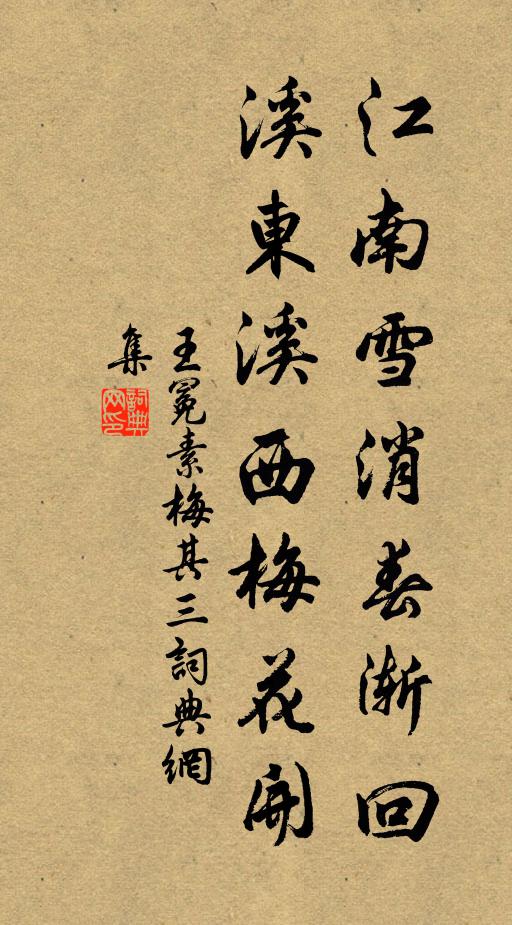 江南雪消春渐回
溪東溪西梅花開
王冕素梅其三詞典網
集
詞典網印